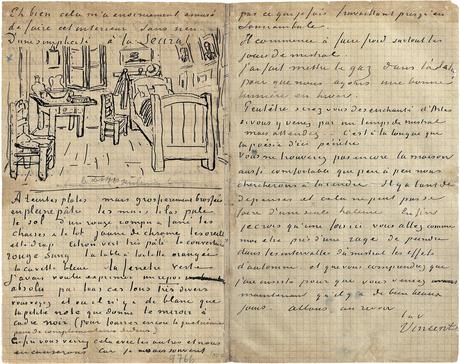 Eh bien cela m'a énormément amusé
de faire cet intérieur sans rien
d'une simplicité à la Seurat
A teintes plates mais grossièrement brossées
en pleine pâte les murs lilas pale
le sol d'un rouge rompu & fané les
chaises & le lit jaune de chrome les oreillers
et le drap citron vert très pâle la couverture
rouge sang la table à toilette orangée
la cuvette bleue la fenêtre verte
j'avais voulu exprimer un repos
absolu par tous ces tons très divers
vous voyez et où il n'y a de blanc que
la petite note que donne le miroir à
cadre noir (pour fourrer encore la quatrième
paire de complémentaires dedans)
Enfin vous verrez cela avec les autres et nous
en causerons car je ne sais souvent
pas ce que je fais travaillant presqu'en
somnambule
Il commence à faire froid surtout les
jours de mistral
j'ai fait mettre le gaz dans l'atelier
pour que nous ayons une bonne
lumière en hiver
Peutêtre serez vous désenchanté d'Arles
si vous y venez par un temps de mistral
mais attendez – C'est à la longue que
la poésie d'ici pénètre
Vous ne trouverez pas encore la maison
aussi comfortable que peu à peu nous
chercherons à la rendre Il y a tant de
dépenses et cela ne peut pas se
faire d'une seule haleine Enfin
je crois qu'une fois ici vous allez comme
moi être pris d'une rage de peindre
dans les intervalles du mistral les effets
d'automne et que vous comprendrez que
j'ai insisté pour que vous venez
maintenant qu'il y a de bien beaux
jours allons au revoir
t. à v.
Vincent